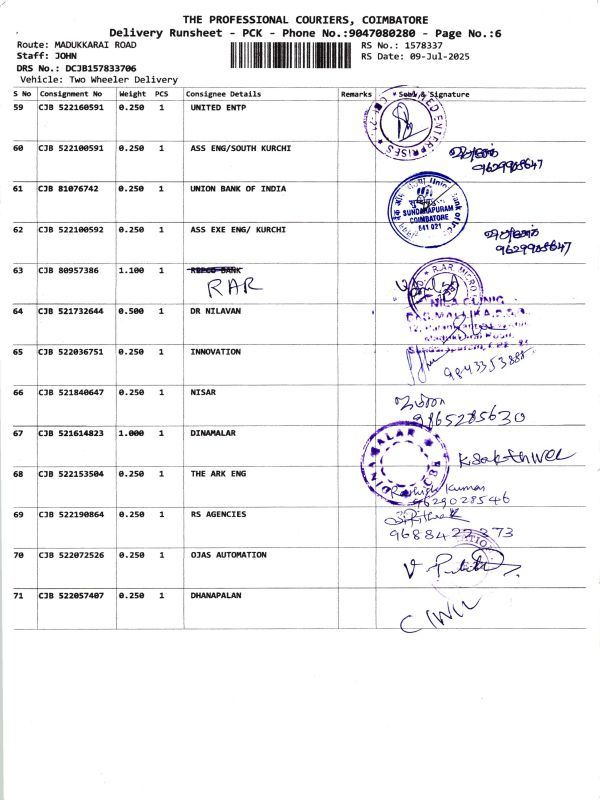 THE PROFESSIONAL COURIERS, COIMBATORE
Delivery Runsheet - PCK - Phone No.:9047080280 - Page No.:6
Route: MADUKKARAI ROAD
RS No.: 1578337
Staff: JOHN
RS Date: 09-Jul-2025
DRS No.: DCJB157833706
Vehicle: Two Wheeler Delivery
S No Consignment No Weight PCS Consignee Details Remarks Seal & Signature
59 CJB 522160591 0.250 1 UNITED ENTP
60 CJB 522100591 0.250 1 ASS ENG/SOUTH KURCHI
9629905647
61 CJB 81076742 0.250 1 UNION BANK OF INDIA
SUNDARAPURAM
COIMBATORE
641 021
62 CJB 522100592 0.250 1 ASS EXE ENG/ KURCHI
9629905647
63 CJB 80957386 1.100 1 REPCO BANK
RAR
64 CJB 521732644 0.500 1 DR NILAVAN
NILA CLINIC
65 CJB 522036751 0.250 1 INNOVATION
9843353888
66 CJB 521840647 0.250 1 NISAR
9865285630
67 CJB 521614823 1.000 1 DINAMALAR
DINAMALAR CBE
K. Sakthivel
68 CJB 522153504 0.250 1 THE ARK ENG
Kumar
9629028546
69 CJB 522190864 0.250 1 RS AGENCIES
9688422373
70 CJB 522072526 0.250 1 OJAS AUTOMATION
71 CJB 522057407 0.250 1 DHANAPALAN